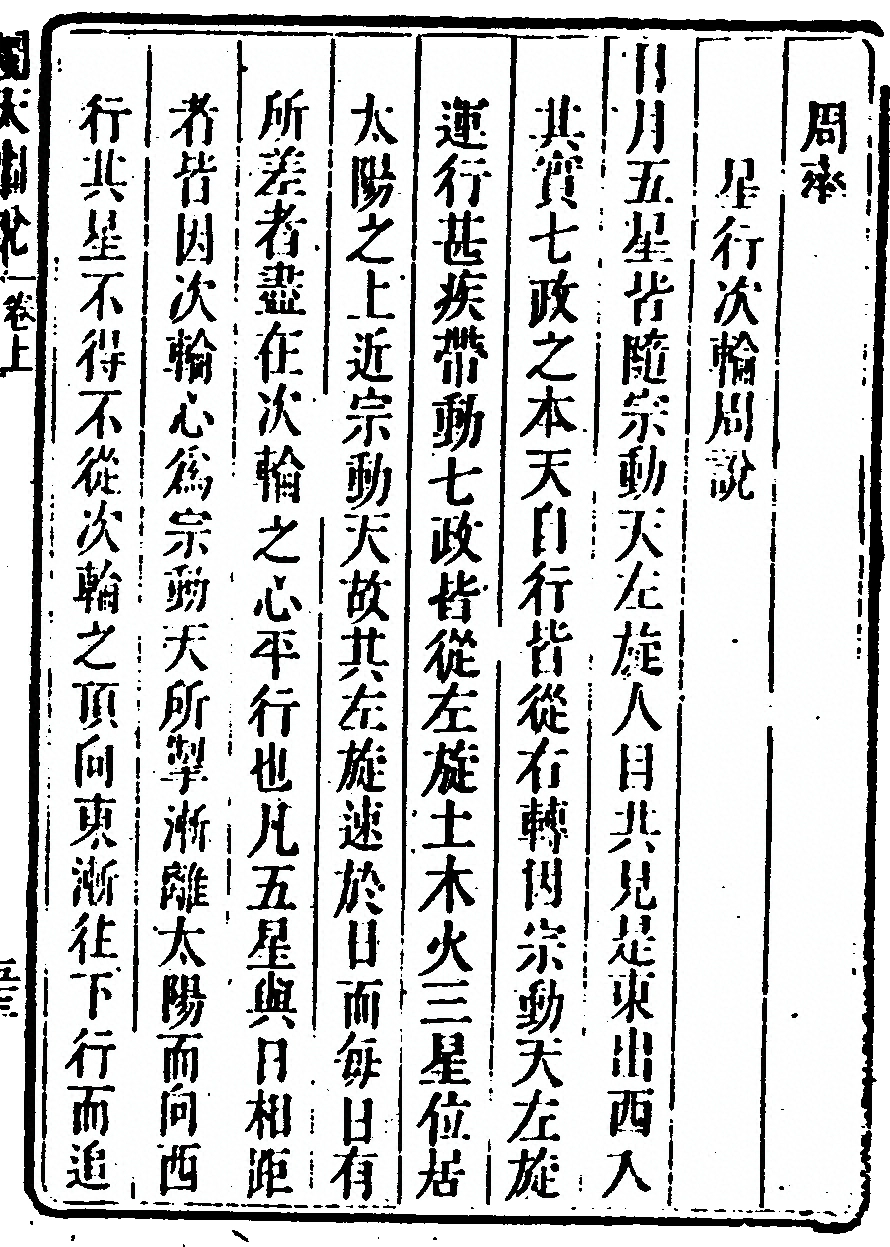 周率
星行次輪周說
日月五星皆隨宗動天左旋人目共見是東出西入
其實七政之本天自行皆從右轉因宗動天左旋
運行甚疾帶動七政皆從左旋土木火三星位居
太陽之上近宗動天故其左旋速於日而每日有
所差者盡在次輪之心平行也凡五星與日相距
者皆因次輪心爲宗動天所掣漸離太陽而向西
行其星不得不從次輪之頂向東漸往下行而追
天 說 卷上
五三